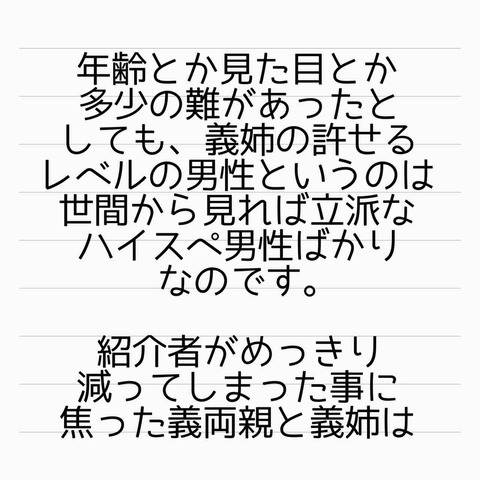 年齢とか見た目とか
多少の難があったと
しても、義姉の許せる
レベルの男性というのは
世間から見れば立派な
ハイスペ男性ばかり
なのです。
紹介者がめっきり
減ってしまった事に
焦った義両親と義姉は